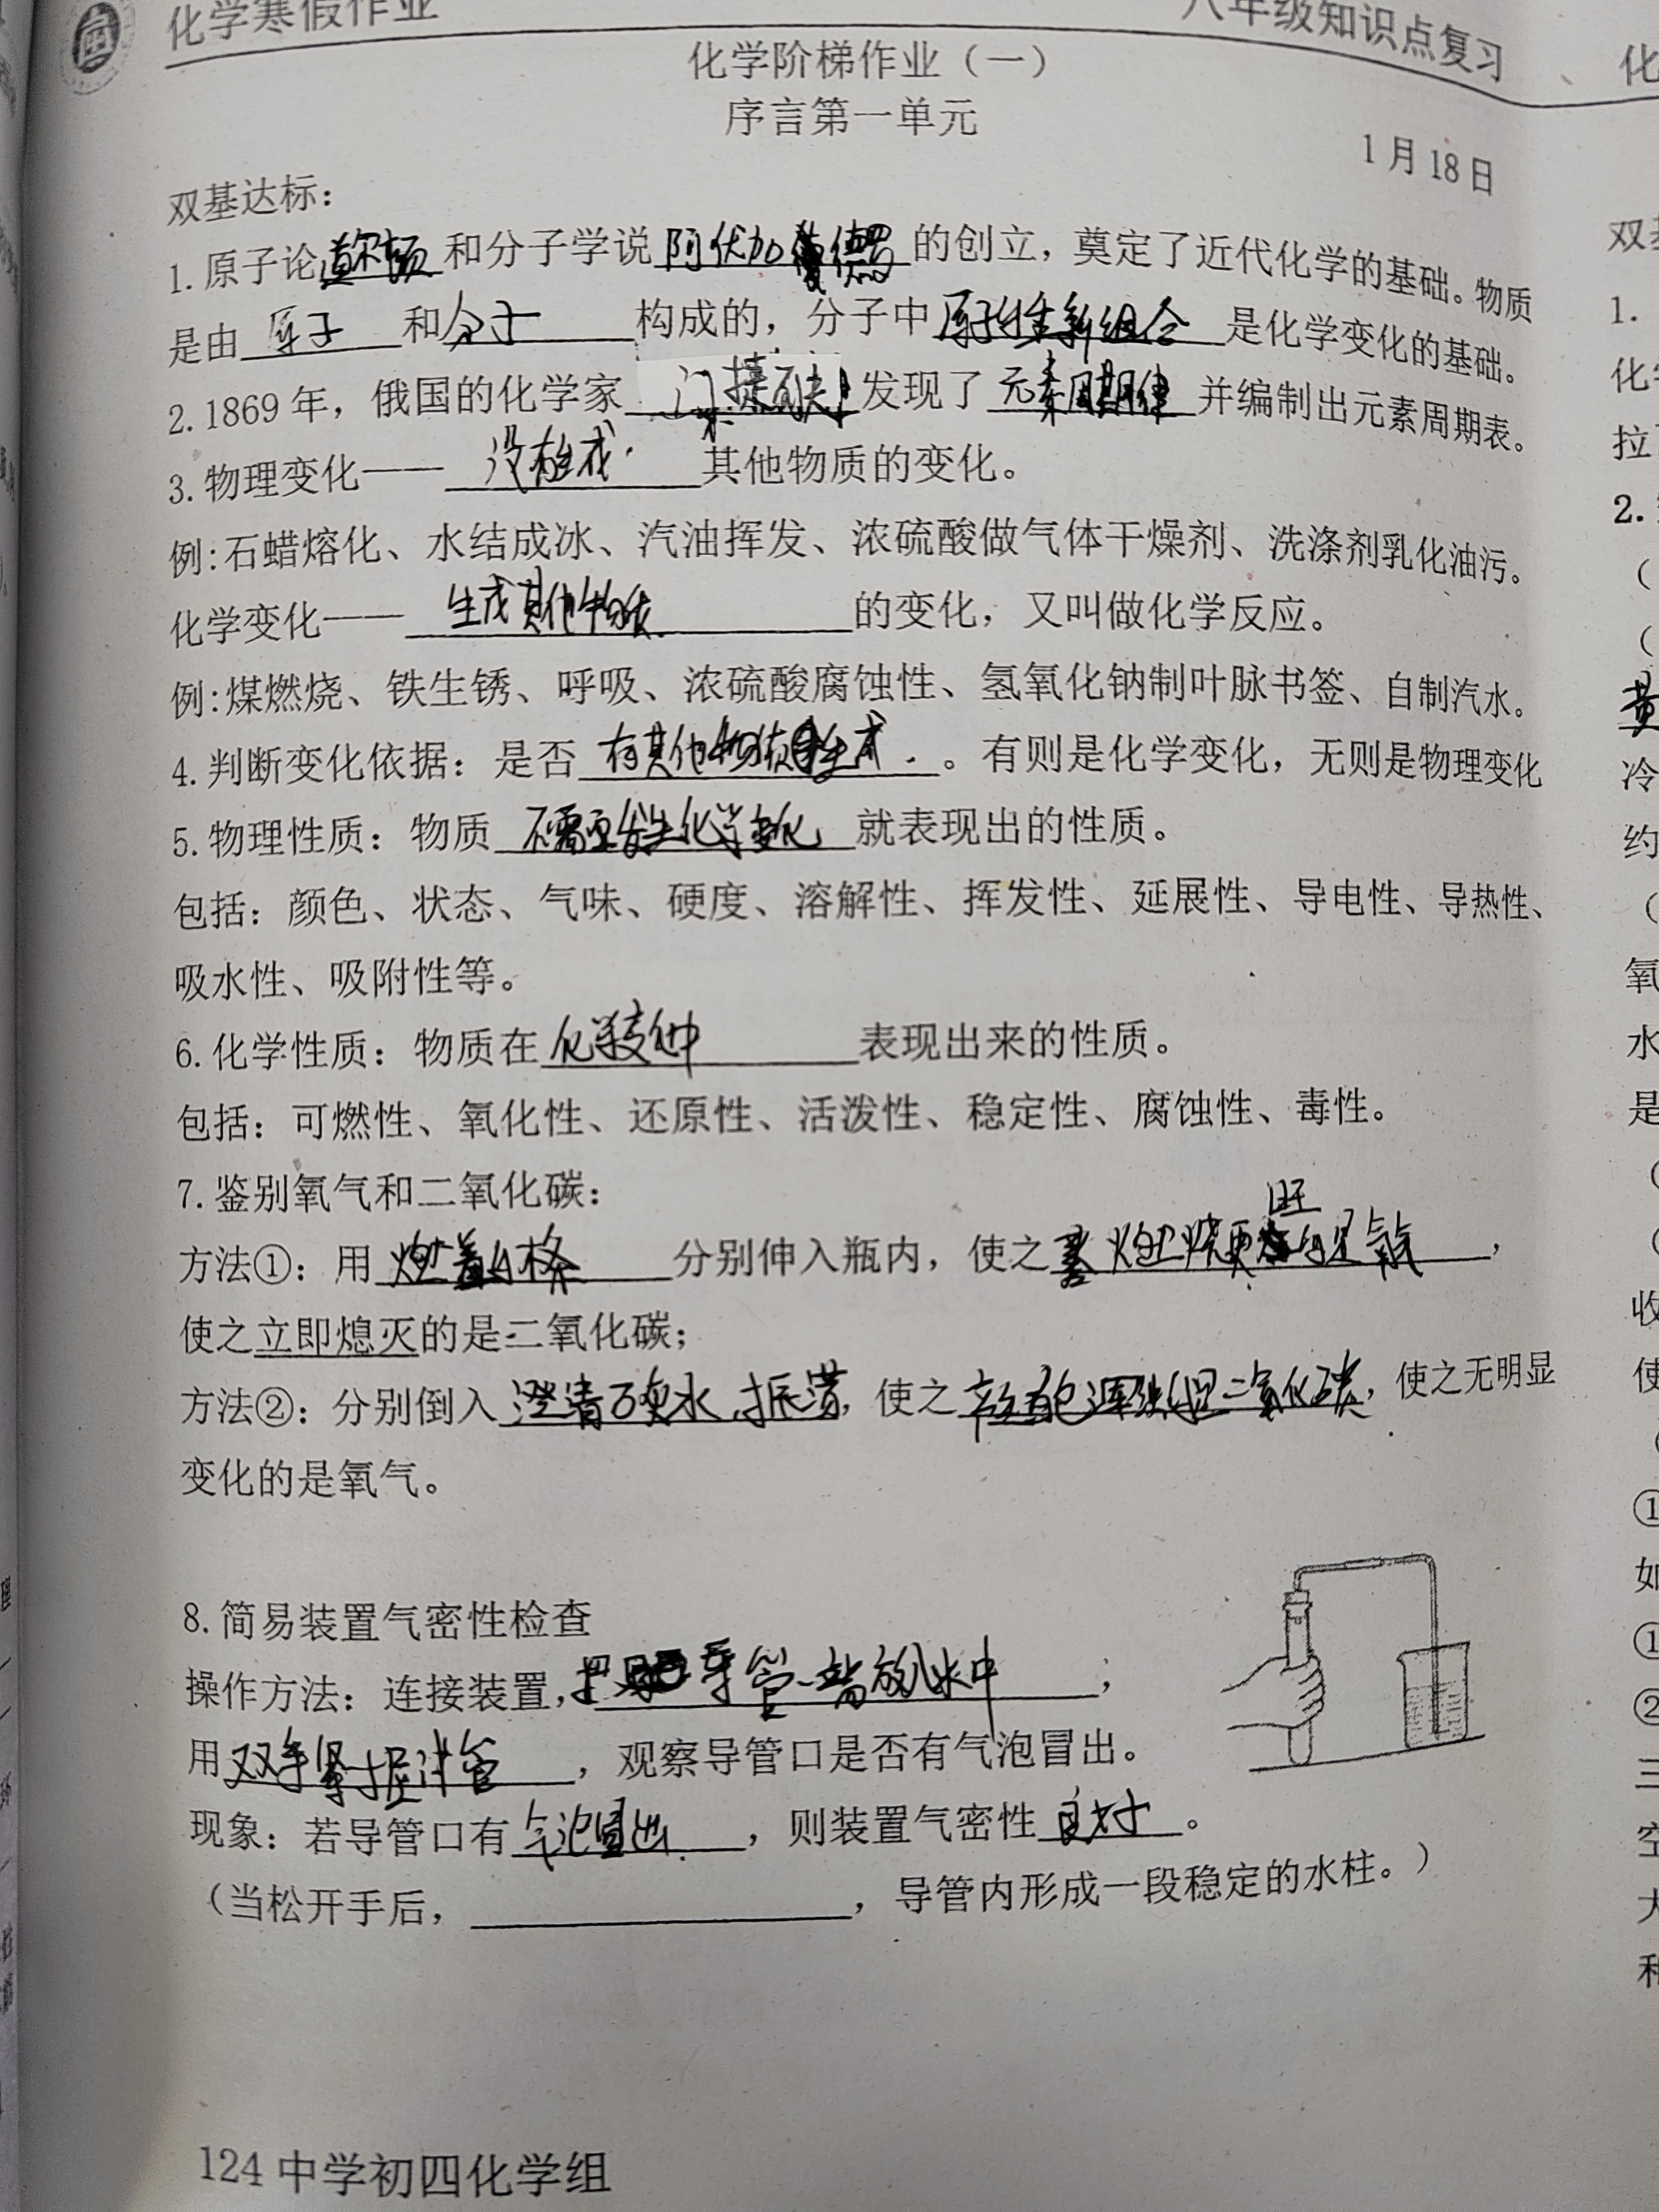 化学寒假作业
八年级知识点复习
化学阶梯作业（一）
序言第一单元
1月18日
双基达标：
1.原子论道尔顿和分子学说阿伏加德罗的创立，奠定了近代化学的基础。物质
是由原子和分子构成的，分子中原子重新组合是化学变化的基础。
2.1869年，俄国的化学家门捷列夫发现了元素周期律并编制出元素周期表。
3.物理变化——没有生成其他物质的变化。
例:石蜡熔化、水结成冰、汽油挥发、浓硫酸做气体干燥剂、洗涤剂乳化油污。
化学变化——生成其他物质的变化，又叫做化学反应。
例:煤燃烧、铁生锈、呼吸、浓硫酸腐蚀性、氢氧化钠制叶脉书签、自制汽水。
4.判断变化依据：是否有其他物质生成.。有则是化学变化，无则是物理变化
5.物理性质：物质不需要发生化学变化就表现出的性质。
包括：颜色、状态、气味、硬度、溶解性、挥发性、延展性、导电性、导热性、
吸水性、吸附性等。
6.化学性质：物质在化学变化中表现出来的性质。
包括：可燃性、氧化性、还原性、活泼性、稳定性、腐蚀性、毒性。
7.鉴别氧气和二氧化碳：
方法①：用燃着木条分别伸入瓶内，使之燃烧更旺的是氧气，
使之立即熄灭的是二氧化碳；
方法②：分别倒入澄清石灰水,振荡，使之变浑浊的是二氧化碳，使之无明显
变化的是氧气。
8.简易装置气密性检查
操作方法：连接装置，把导管一端放入水中；
用双手紧握试管，观察导管口是否有气泡冒出。
现象：若导管口有气泡冒出.，则装置气密性良好。
（当松开手后，，导管内形成一段稳定的水柱。）
124中学初四化学组